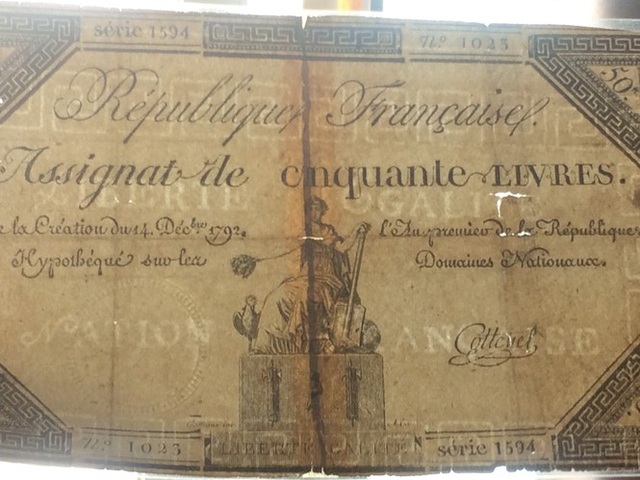 série 1594 nº 1023
50
République Française.
Assignat de cinquante LIVRES.
de la Création du 14. Décbre 1792, l'An premier de la République
Hypothéqué sur les Domaines Nationaux.
LIBERTE EGALITE
NATION FRANCAISE
nº 1023 LIBERTE EGALITE série 1594